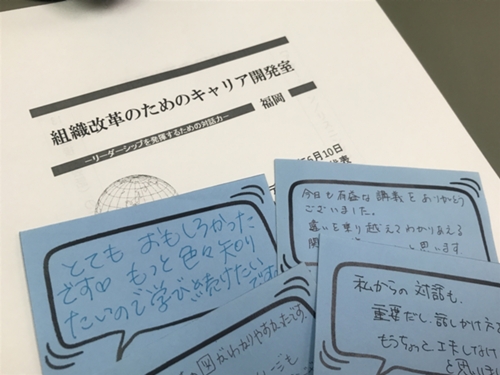 組織改革のためのキャリア開発室
福岡
ーリーダーシップを発揮するための対話力ー
6月10日
とても おもしろかった
です♡ もっと色々知り
たいので学び続けたい
です
今日も有益な講義をありがとう
ございました。
違いを乗り越えてわかりあえる
思います
の図がわかりやすかったです。
私からの対話も、
重要だし、話しかけ方
もうちょっと工夫しなけ
と思いま